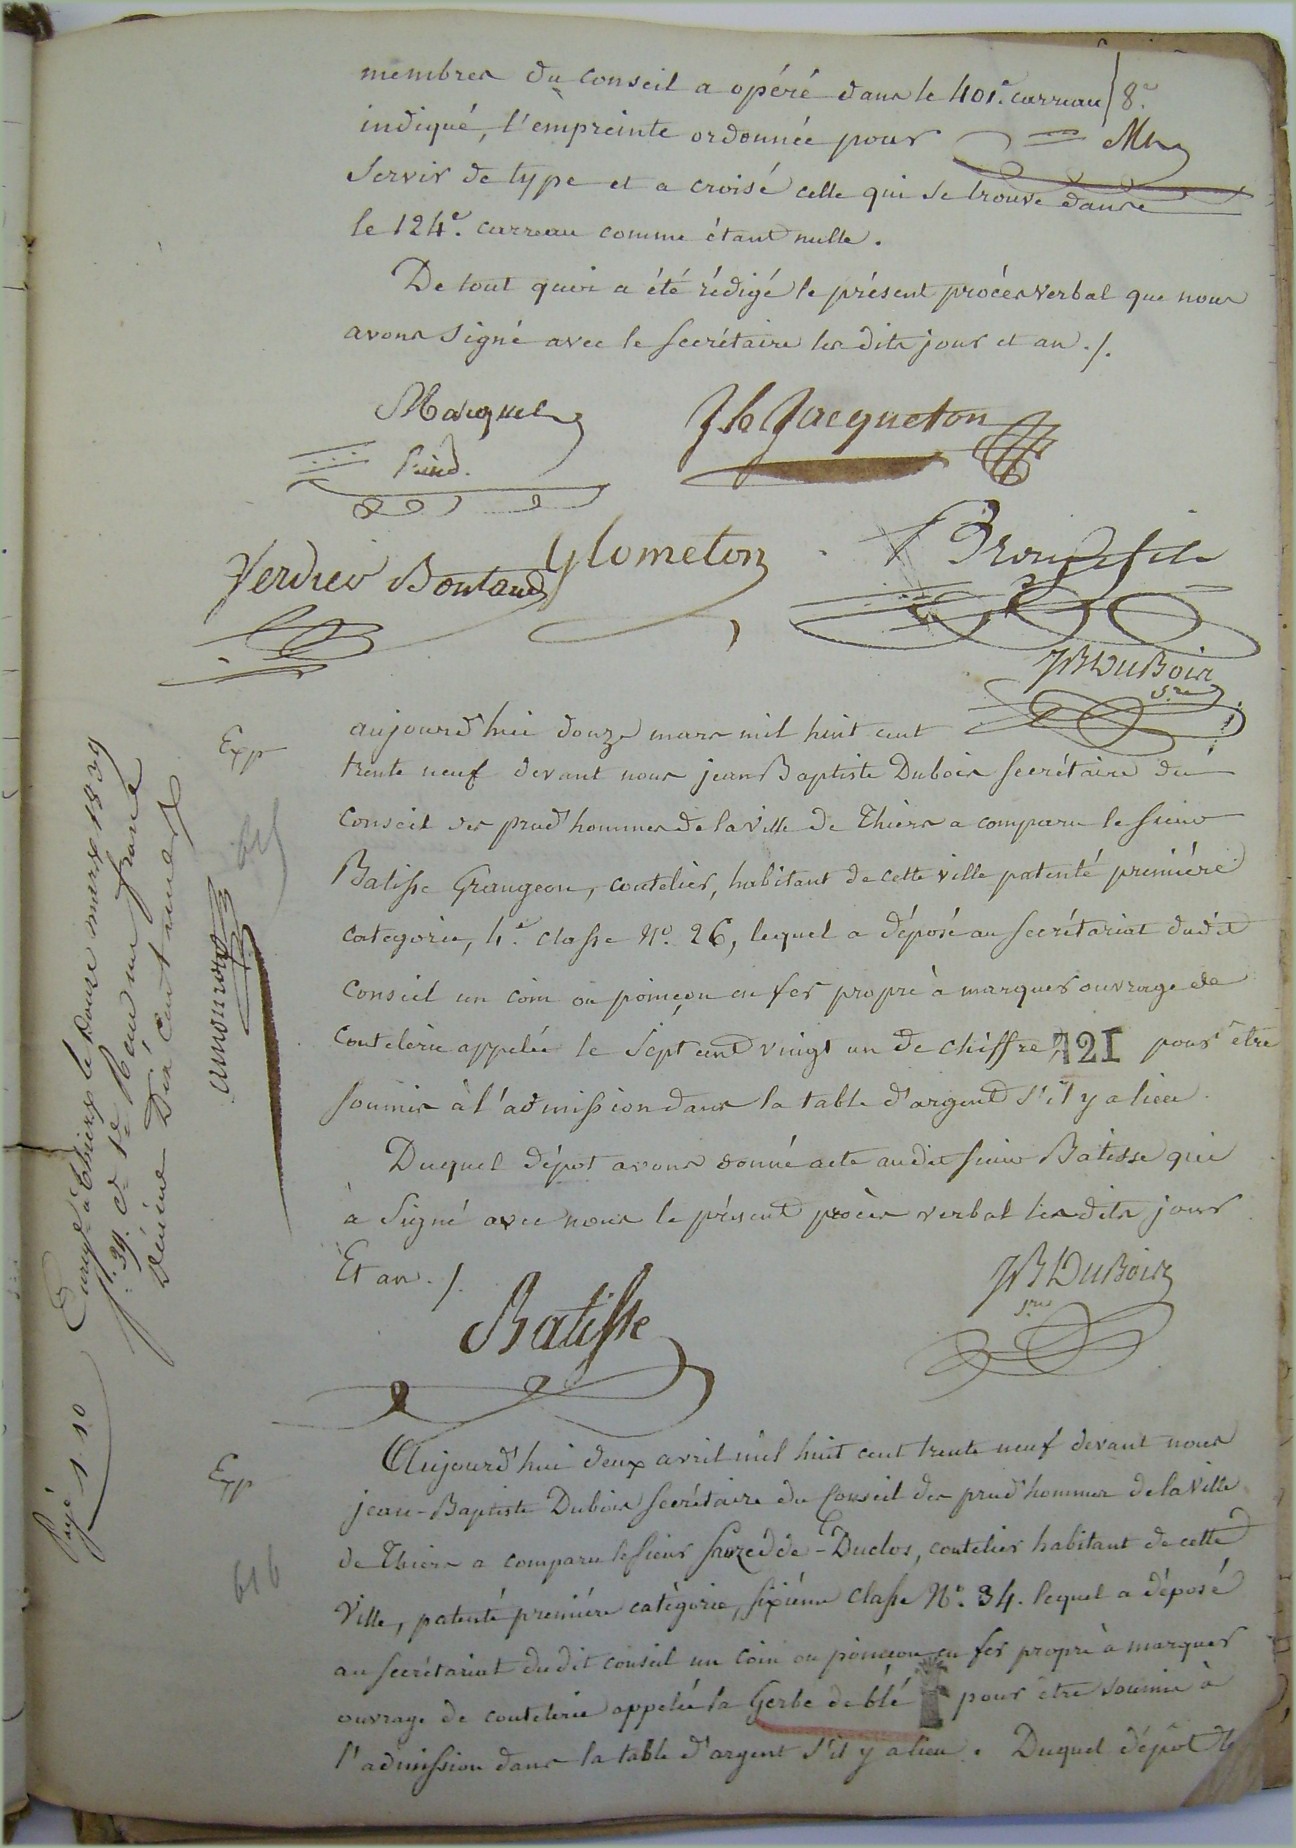 membres du conseil a opéré dans le 401e. carreau 8e.
indiqué, l'empreinte ordonnée pour
servir de type et a croisé celle qui se trouve dans
le 124e. carreau comme étant nulle.
De tout quoi a été rédigé le présent procès verbal que nous
avons signé avec le secrétaire les dits jour et an ./.
Prud.
Jacqueton
Verdier Boutaud
Glometon
JB DuBois
sre
Exp
aujourd'hui douze mars mil huit cent
trente neuf devant nous jean Baptiste Dubois secrétaire du
conseil des prud'hommes de la ville de Thiers a comparu le sieur
Batisse Grangeon, coutelier, habitant de cette ville patenté première
catégorie, 4e. classe No. 26, lequel a déposé au secrétariat dudit
conseil un coin ou poinçon en fer propre à marquer ouvrage de
coutelerie appelée le sept cent vingt un de chiffre 721 pour être
soumis à l'admission dans la table d'argent s'il y a lieu.
Duquel dépot avons donné acte audit sieur Batisse qui
à signé avec nous le présent procès verbal les dits jour
Et an ./.
Batisse
JB DuBois
sre
à Thiers le douze mars 1839
fo. 39. reçu un franc
décime dix centimes
Payé 1-10
Exp
616
Aujourd'hui deux avril mil huit cent trente neuf devant nous
jean-Baptiste Dubois secrétaire du Conseil des prud'hommes de la ville
de Thiers a comparu le sieur -Duclos, coutelier habitant de cette
ville, patenté première catégorie, sixième classe No. 34. lequel a déposé
au secrétariat dudit conseil un coin ou poinçon en fer propre à marquer
ouvrage de coutelerie appelée la Gerbe de blé pour être soumis à
l'admission dans la table d'argent s'il y a lieu. Duquel dépôt